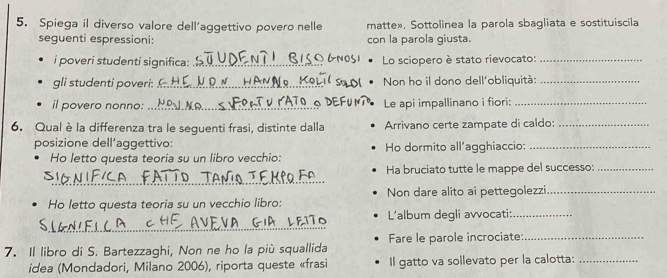 5. Spiega il diverso valore dell'aggettivo povero nelle
seguenti espressioni:
• i poveri studenti significa: STUDENTI BISOGNOSI
• gli studenti poveri: CHE NON HANNO MOLTI SOLDI
• il povero nonno: NONNO SFORTUNATO O DEFUNTO
6. Qual è la differenza tra le seguenti frasi, distinte dalla
posizione dell'aggettivo:
• Ho letto questa teoria su un libro vecchio:
SIGNIFICA FATTO TANTO TEMPO FA
• Ho letto questa teoria su un vecchio libro:
SIGNIFICA CHE AVEVA GIA LETTO
7. Il libro di S. Bartezzaghi, Non ne ho la più squallida
idea (Mondadori, Milano 2006), riporta queste «frasi
matte». Sottolinea la parola sbagliata e sostituiscila
con la parola giusta.
• Lo sciopero è stato rievocato:
• Non ho il dono dell'obliquità:
• Le api impallinano i fiori:
• Arrivano certe zampate di caldo:
• Ho dormito all'agghiaccio:
• Ha bruciato tutte le mappe del successo:
• Non dare alito ai pettegolezzi
• L'album degli avvocati:
• Fare le parole incrociate:
• Il gatto va sollevato per la calotta: